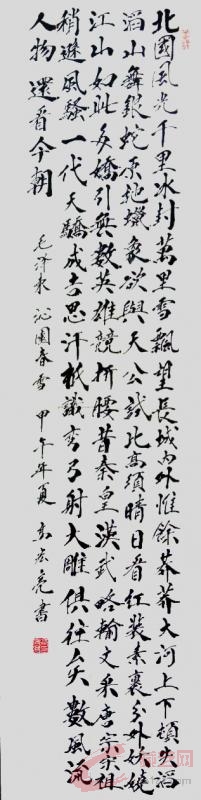 北國風光千里冰封萬里雪飄望長城內外惟餘莽莽大河上下頓失滔
滔山舞銀蛇原馳蠟象欲與天公試比高須晴日看紅裝素裹分外妖嬈
江山如此多嬌引無數英雄競折腰昔秦皇漢武略輸文采唐宗宋祖
稍遜風騷一代天驕成吉思汗祇識彎弓射大雕俱往矣數風流
人物還看今朝 毛澤東 沁園春雪 甲午年夏 書